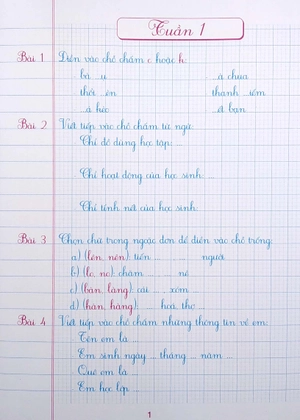 Tuần 1
Bài 1 Điền vào chỗ chấm c hoặc h:
bà ...u ...à chua
thổi ...èn thanh ...iếm
...á heo ...á bạn
Bài 2 Viết tiếp vào chỗ chấm từ ngữ:
Chỉ đồ dùng học tập: ...
Chỉ hoạt động của học sinh: ...
Chỉ tính nết của học sinh: ...
Bài 3 Chọn chữ trong ngoặc đơn để điền vào chỗ trống:
a) (lên, nên) tiến ... ... người
b) (lo, no) chăm ... ... nê
c) (bàn, làng) cái ... xóm ...
d) (hàn, hàng) ... hoa thơ ...
Bài 4 Viết tiếp vào chỗ chấm những thông tin về em:
Tên em là ...
Em sinh ngày ... tháng ... năm ...
Quê em là ...
Em học lớp ...
1